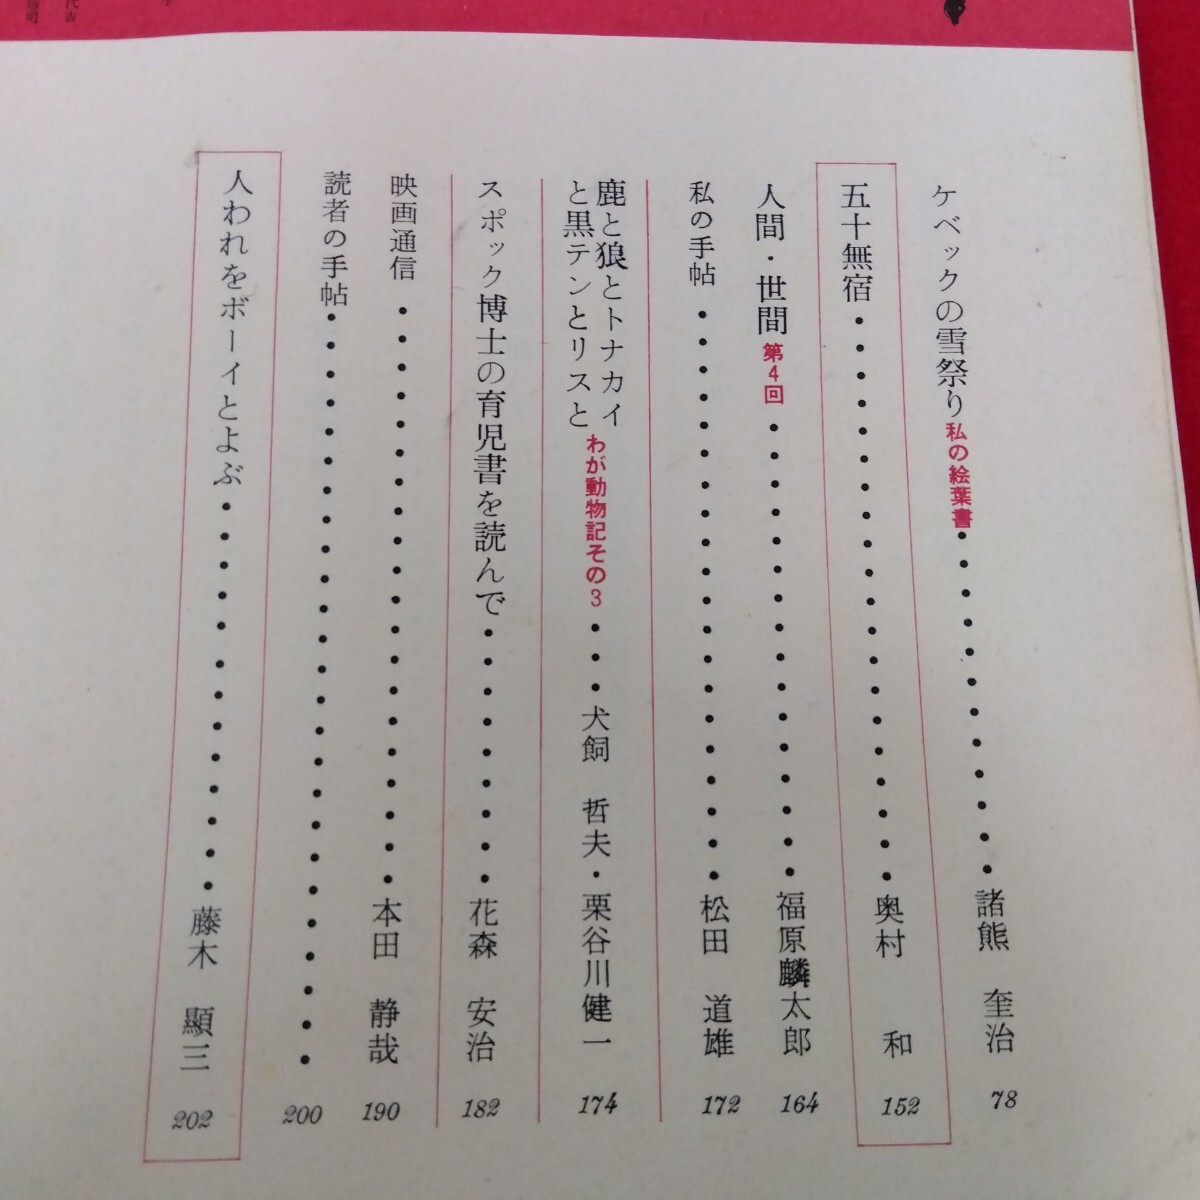 ケベックの雪祭り 私の絵葉書 諸熊 奎治 78
五十無宿 奥村 和 152
人間・世間 第4回 福原麟太郎 164
私の手帖 松田 道雄 172
鹿と狼とトナカイ
と黒テンとリスと わが動物記その3 犬飼 哲夫・栗谷川健一 174
スポック博士の育児書を読んで 花森 安治 182
映画通信 本田 静哉 190
読者の手帖 200
人われをボーイとよぶ 藤木 顯三 202